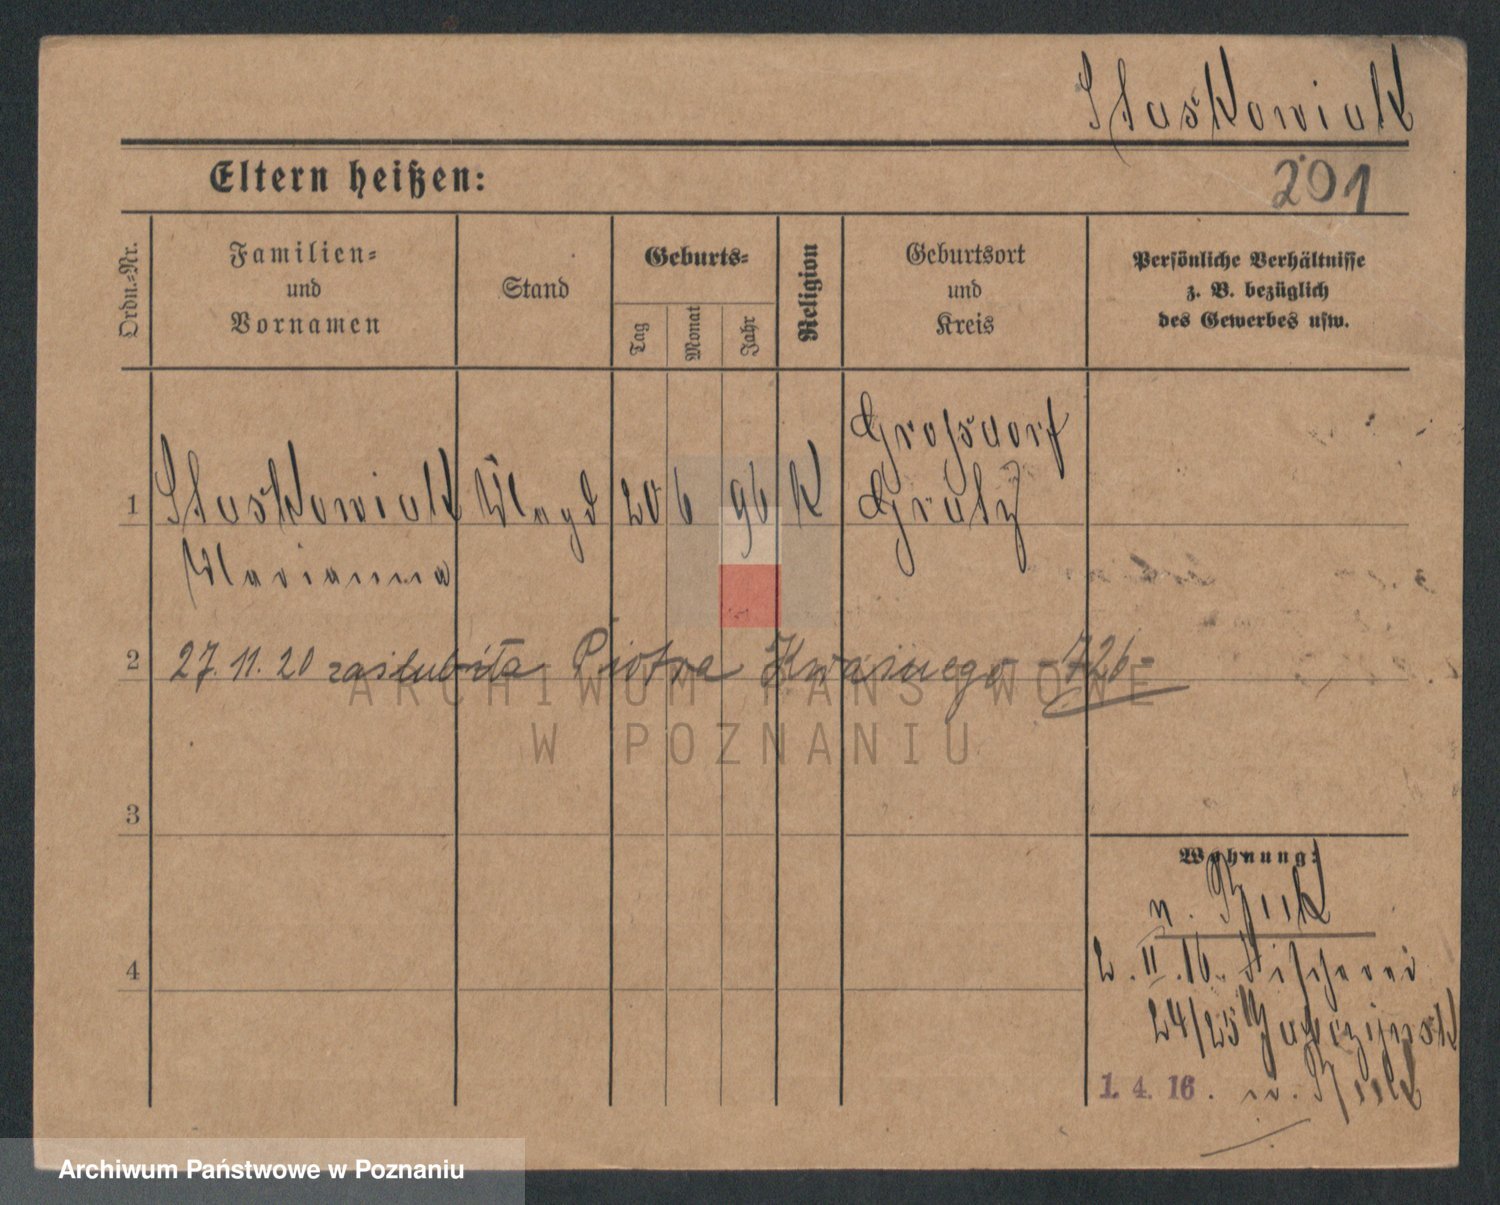 Staśkowiak
Eltern heißen:
201
Ordn.-Nr.
Familien-
und
Vornamen
Stand
Geburts-
Tag
Monat
Jahr
Religion
Geburtsort
und
Kreis
Persönliche Verhältnisse
z. B. bezüglich
des Gewerbes usw.
1
Staśkowiak Magd 20 6 96 K
Grossdorf
Grätz
Marianna
2
27.11.20 zaślubiła Piotra Kwaśnego 726-
ARCHIWUM PAŃSTWOWE
W POZNANIU
3
Wohnung:
n. Buk
4
2.II.16. Fischerei
24/25
1. 4. 16. n. Buk
Archiwum Państwowe w Poznaniu